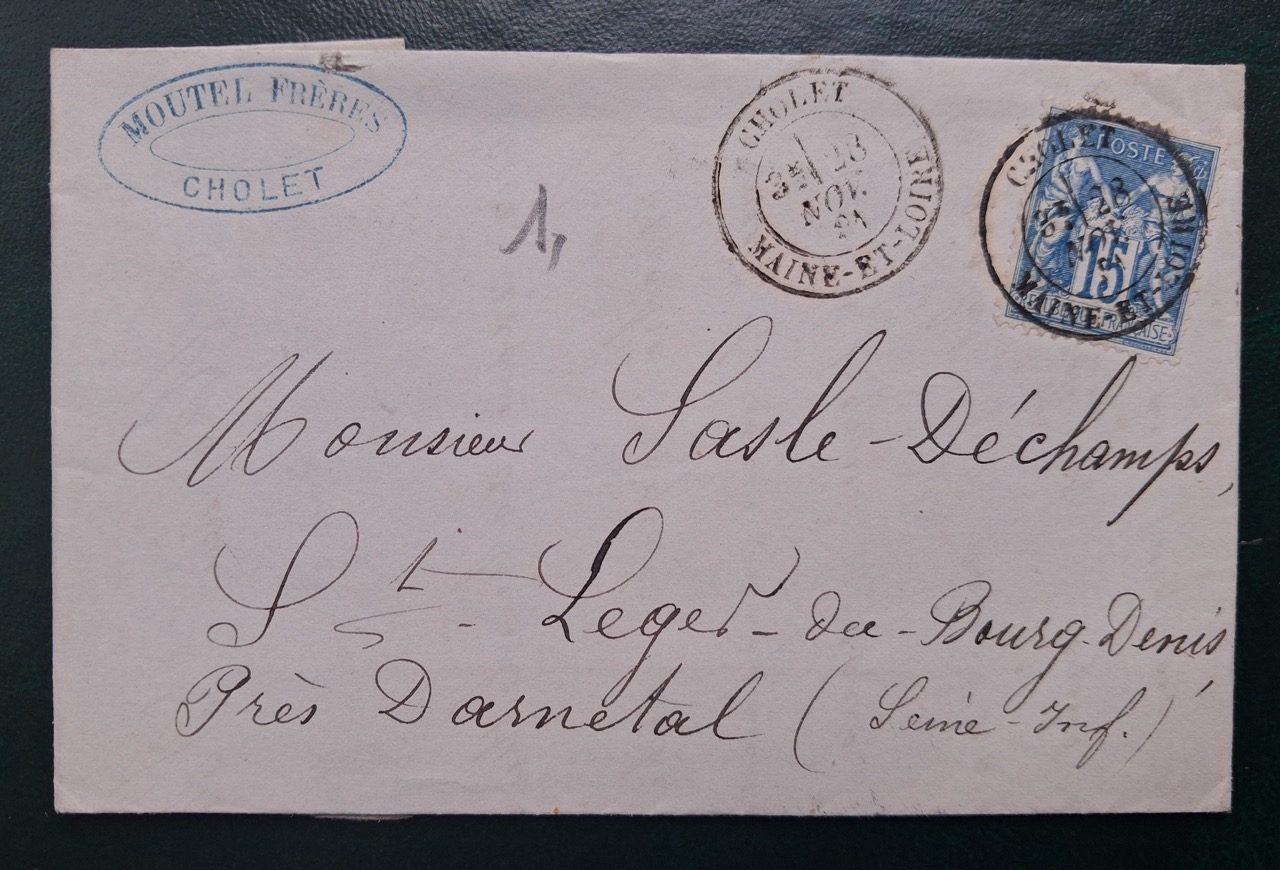 MOUTEL FRÈRES
CHOLET
1,
CHOLET
28
NOV.
81
MAINE-ET-LOIRE
CHOLET
28
NOV
MAINE-ET-LOIRE
POSTE
15
REPUBLIQUE FRANÇAISE
Monsieur Sasle-Déchamps,
St-Leger-du-Bourg-Denis,
Près Darnetal (Seine-Inf.)